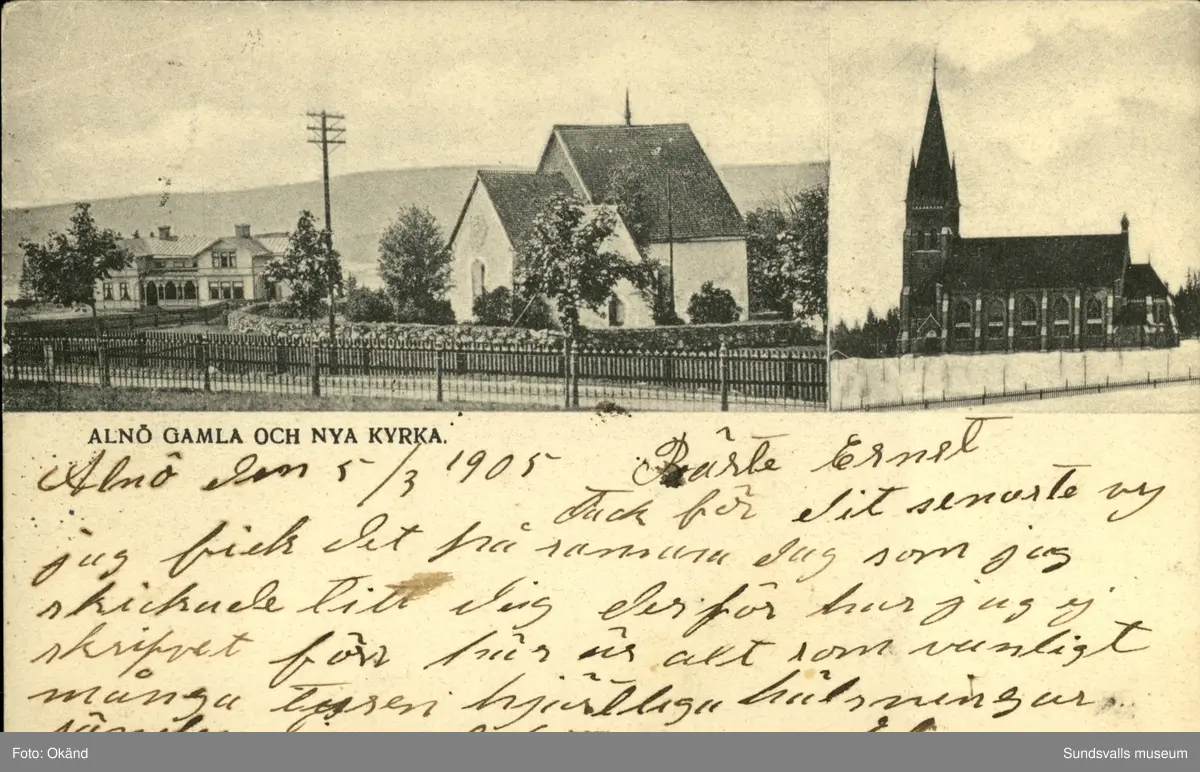 ALNÖ GAMLA OCH NYA KYRKA.
Alnö den 5/3 1905 Bäste Ernst
Tack för dit senaste vy
jag fick det på samma dag som jag
skickade till dig derför har jag ej
skrifvet förr här är alt som vanligt
många tusen hjärtliga hälsningar
Foto: Okänd
Sundsvalls museum